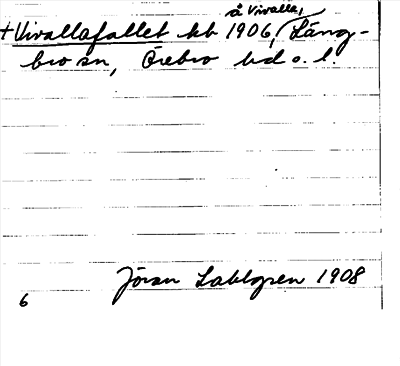 å Vivalla,
+ Vivallafallet kb 1906, Läng-
bro sn, Örebro hd o. l.
Jöran Sahlgren 1908
6